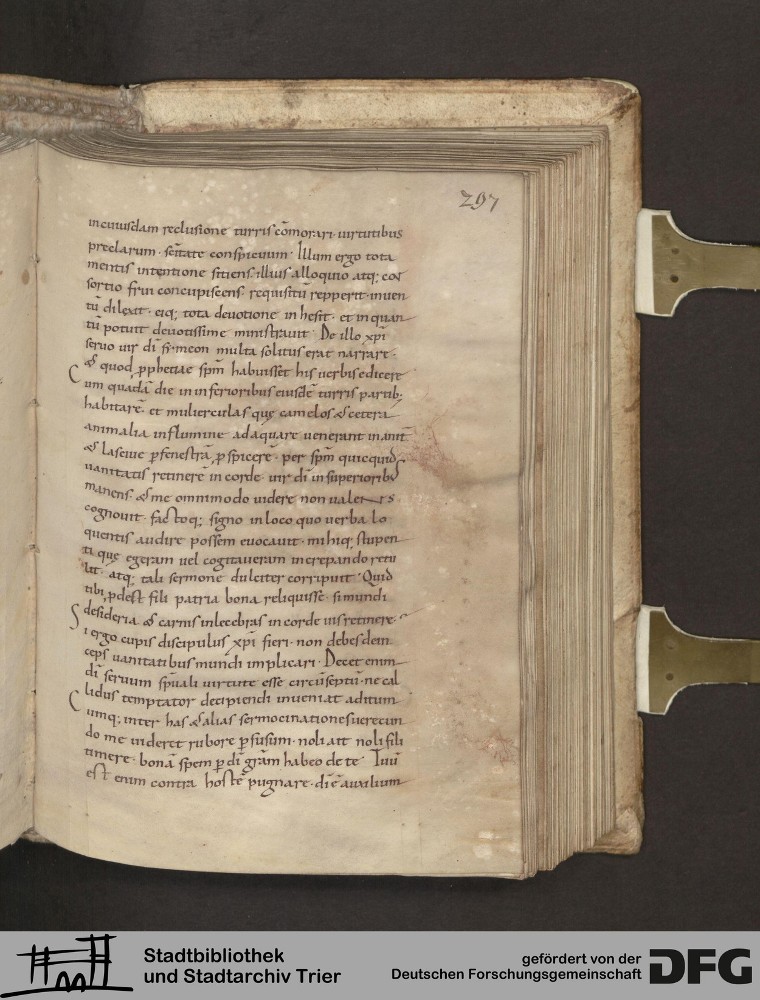 297
incuiusdam reclusione turris cōmorari· uirtutibus
preclarum· sc̄itate conspicuum· Illum ergo tota
mentis intentione sitiens· illius alloquio atq; con
sortio frui concupiscens requisitū repperit· inuen
tū dilexit· eiq; tota deuotione inhesit· et inquan
tū potuit deuotissime ministrauit· De illo xp̄i
seruo uir dī sȳmeon multa solitus erat narrare·
& quod p̄phetiae sp̄m habuisset his uerbis edicere
Cum quadā die in inferioribus eiusdē turris partib;
habitarē· et mulierculas quę camelos & cetera
animalia in flumine adaquare uenerant inaniť
& lasciue p fenestrā pspicerē· per sp̄m quicquid
uanitatis retinerē in corde· uir dī in superiorib;
manens· & me omnimodo uidere non ualens
cognouit· factoq; signo in loco quo uerba lo
quentis audire possem euocauit· mihiq; stupen
ti quę egeram uel cogitaueram increpando retu
lit· atq; tali sermone dulciter corripuit· Quid
tibi pdest fili patria bona reliquisse· si mundi
desideria & carnis inlecebras in corde uis retinere·
Si ergo cupis discipulus xp̄i fieri· non debes dein
ceps uanitatibus mundi implicari· Decet enim
dī seruum sp̄uali uirtute esse circūseptū· ne cal
lidus temptator decipiendi inueniat aditum
Cumq; inter has & alias sermocinationes uerecun
do me uideret rubore pfusum· noli ait noli fili
timere· bonā spem p dī grām habeo de te· Tuū
est enim contra hostē pugnare· dī ē auxilium
Stadtbibliothek
und Stadtarchiv Trier
gefördert von der
Deutschen Forschungsgemeinschaft
DFG